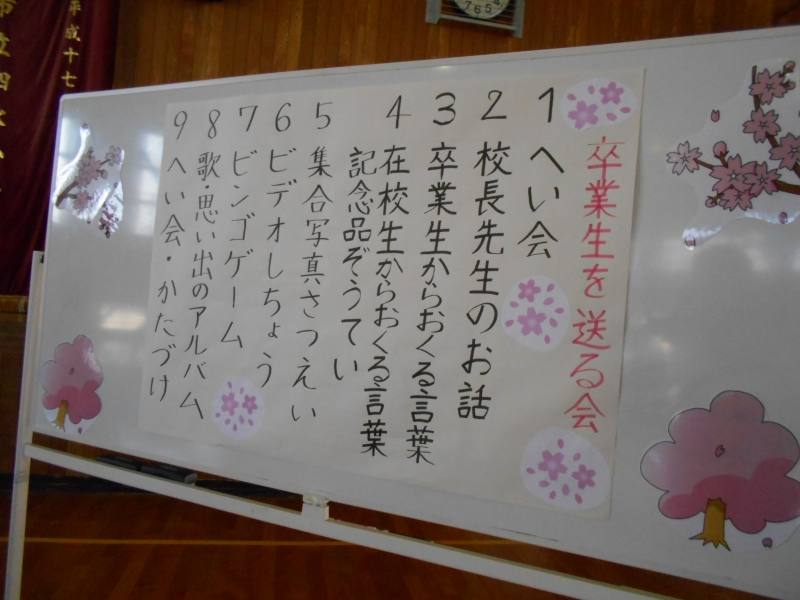 卒業生を送る会
1 へい会
2 校長先生のお話
3 卒業生からおくる言葉
4 在校生からおくる言葉
記念品ぞうてい
5 集合写真さつえい
6 ビデオしちょう
7 ビンゴゲーム
8 歌・思い出のアルバム
9 へい会・かたづけ
平成十七
市立四
7 6 5 4